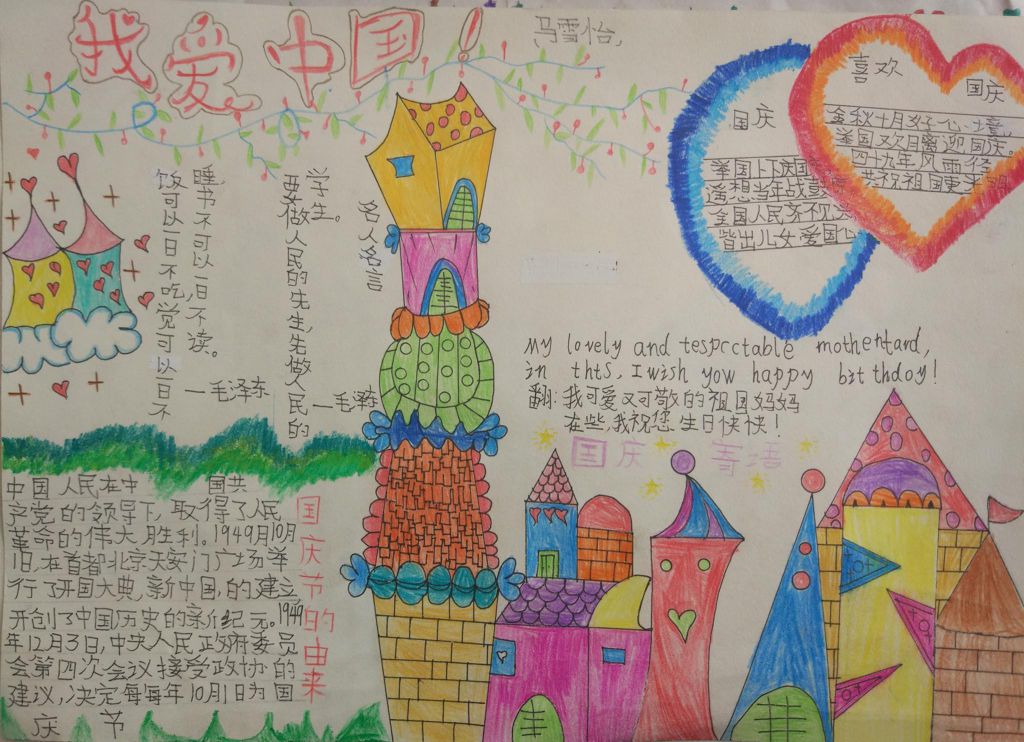 我爱中国!
马雪怡,
名人名言
饭可以一日不吃,觉可以一日不
睡,书不可以一日不读。
—毛泽东
要做人民的先生,先做人民的
学生。
—毛泽东
国庆
举国上下庆国
遥想当年战
全国人民齐祝
皆出儿女爱国心
喜欢
国庆
金秋十月好心境,
举国欢腾迎国庆。
四十九年风雨径
共祝祖国更
My lovely and tespcctable mothentard,
in thts, I wish yow happy bitthdoy!
翻:我可爱又可敬的祖国妈妈
在些,我祝您生日快快!
国庆寄语
国庆节的由来
中国人民在中 国共
产党的领导下,取得了人民
革命的伟大胜利。1949月10月
1日,在首都北京天安门广场举
行了开国大典,新中国,的建立
开创了中国历史的新纪元。1949
年12月3日,中央人民政府委员
会第四次会议接受政协的
建议,决定每每年10月1日为国
庆节